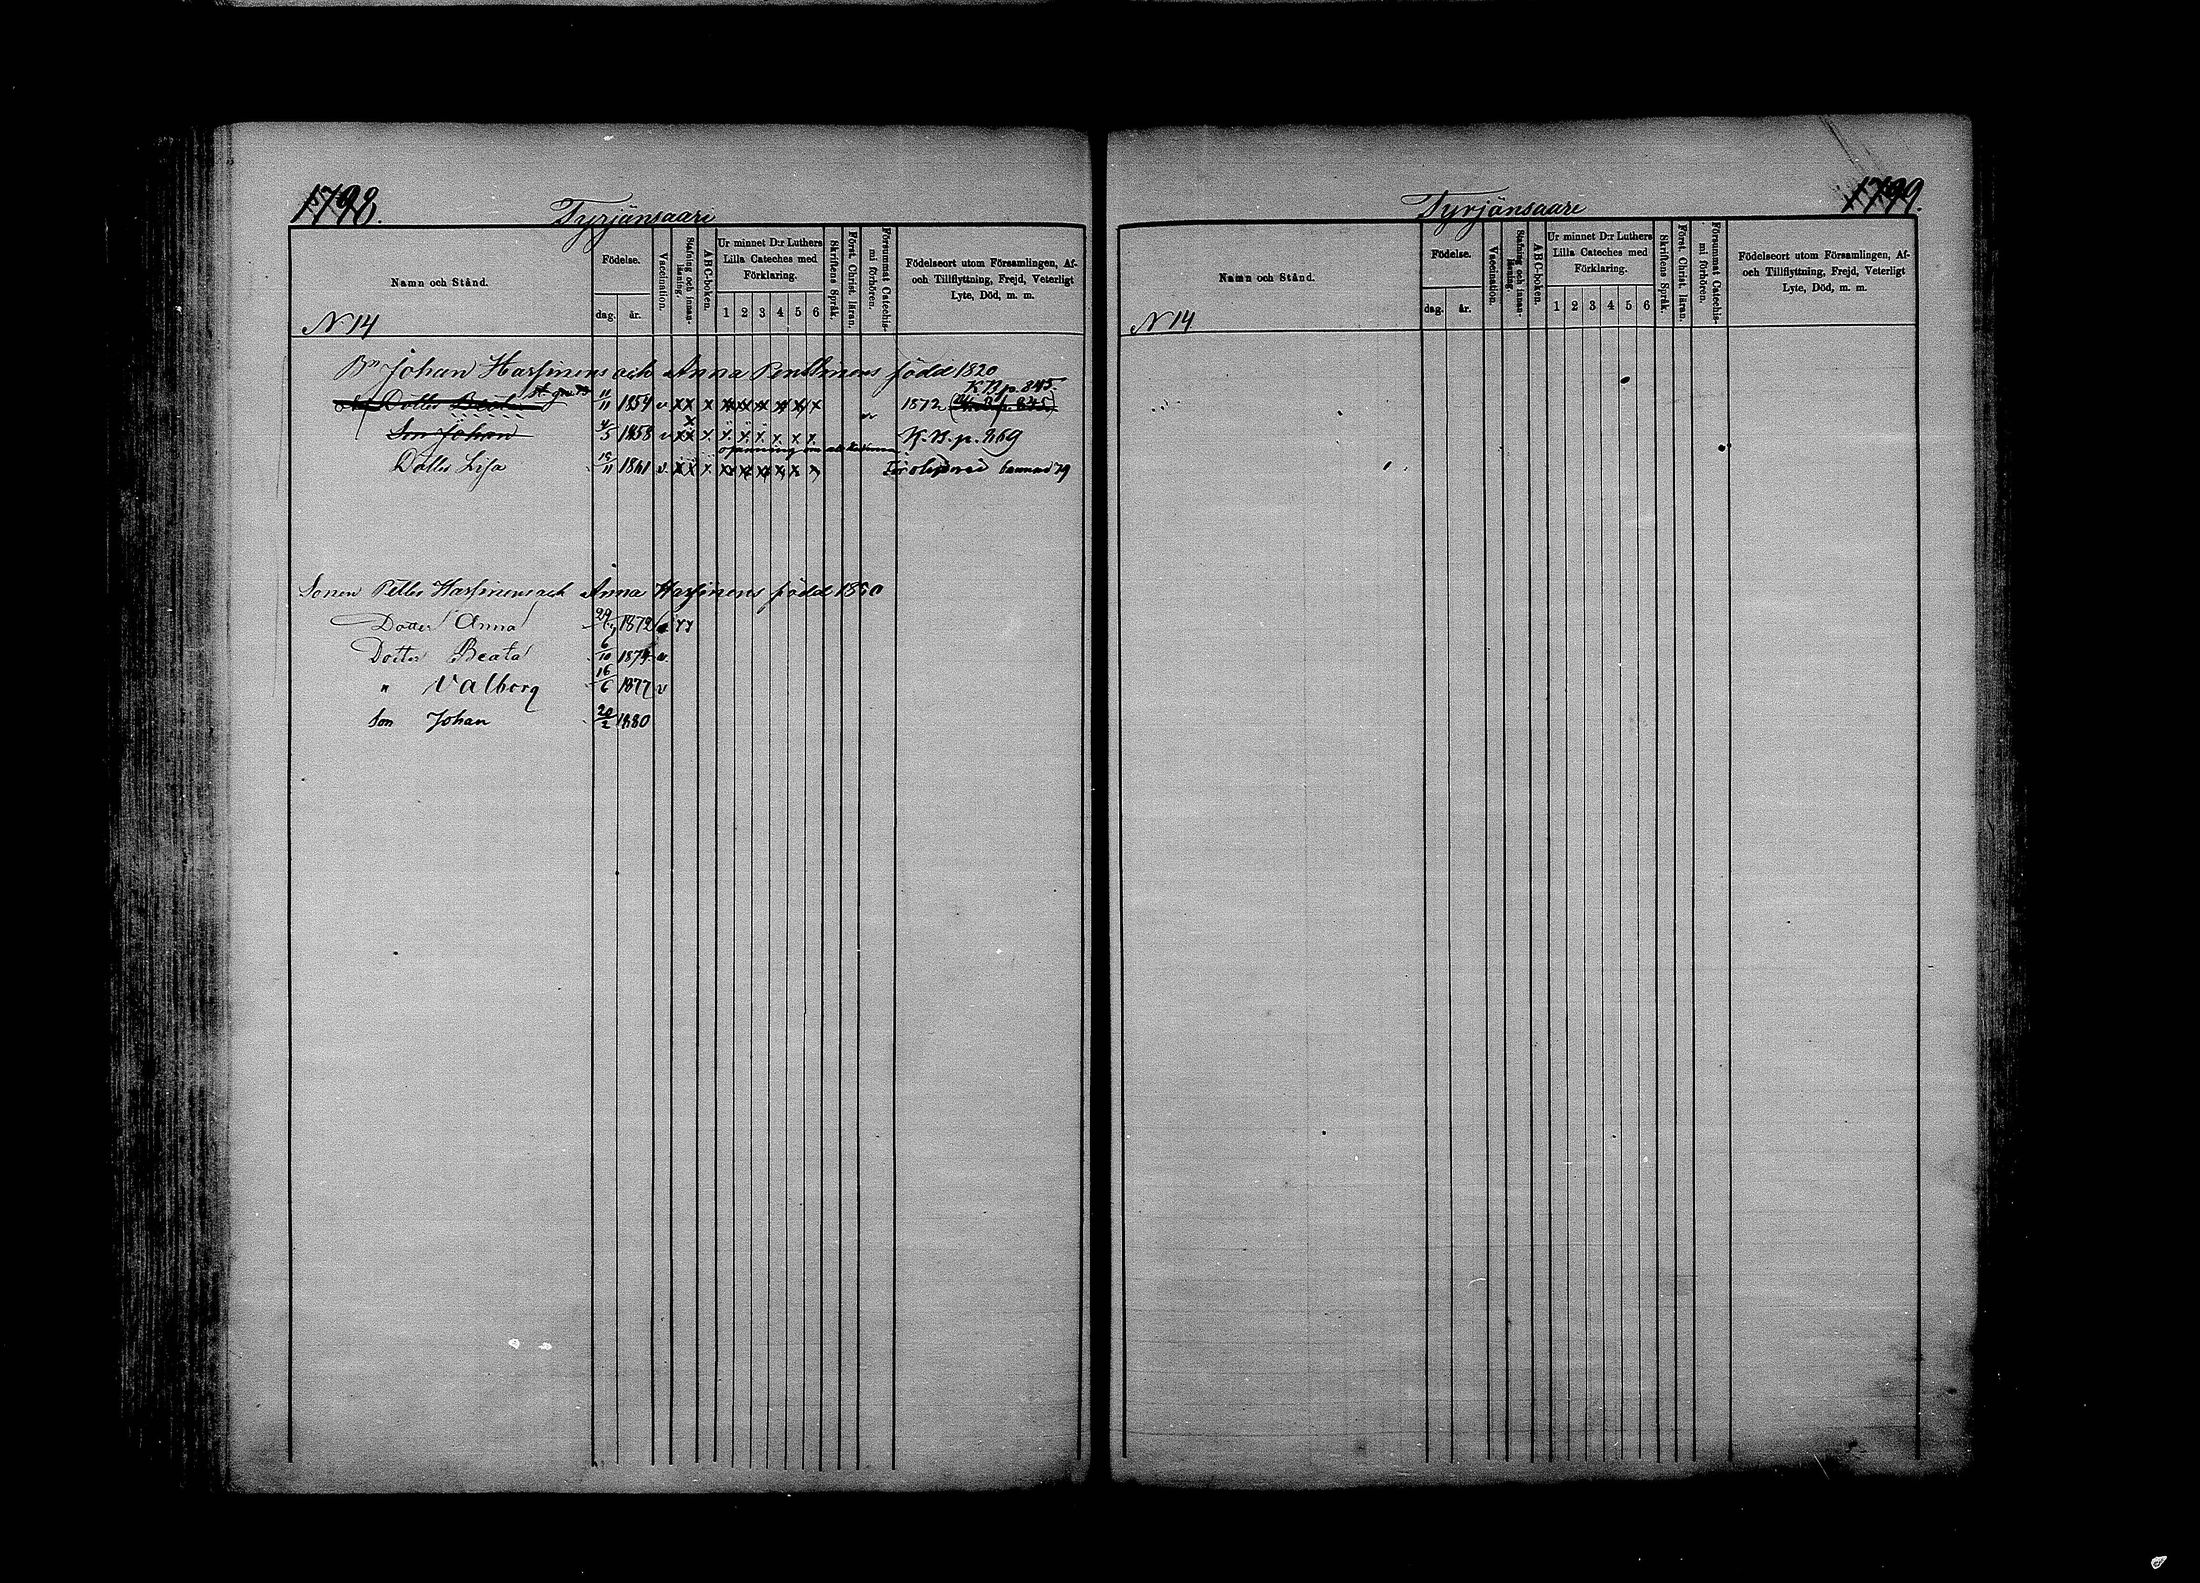 1798.
Tyrjänsaari
Namn och Stånd.
Födelse.
dag. år.
Vaccination.
Stafning och innan-läsning.
ABC-boken.
Ur minnet D:r Luthers
Lilla Cateches med
Förklaring.
1 2 3 4 5 6
Skriftens Språk.
Först. Christ. läran.
Försummat Catechis-mi förhören.
Födelseort utom Församlingen, Af-
och Tillflyttning, Frejd, Veterligt
Lyte, Död, m. m.
N 14
Bn Johan Harfinens och Anna Penttinens född 1820
K B p. 845.
Dotter Beata 11/11 1854 v x x x x x x x x x 1872
Son Johan 4/5 1858 v x x x x x x x x x K. B. p. 269
Dotter Lisa 1861 v. x x x x x x x x x
Sonen Petter Harfinens och Anna Harfinens född 1850
Dotter Anna 1872
Dotter Beata 6/10 1874 v.
" Valborg 16/6 1877 v
Son Johan 20/2 1880
Tyrjänsaari
1799.
Namn och Stånd.
Födelse.
dag. år.
Vaccination.
Stafning och innan-läsning.
ABC-boken.
Ur minnet D:r Luthers
Lilla Cateches med
Förklaring.
1 2 3 4 5 6
Skriftens Språk.
Först. Christ. läran.
Försummat Catechis-mi förhören.
Födelseort utom Församlingen, Af-
och Tillflyttning, Frejd, Veterligt
Lyte, Död, m. m.
N 14